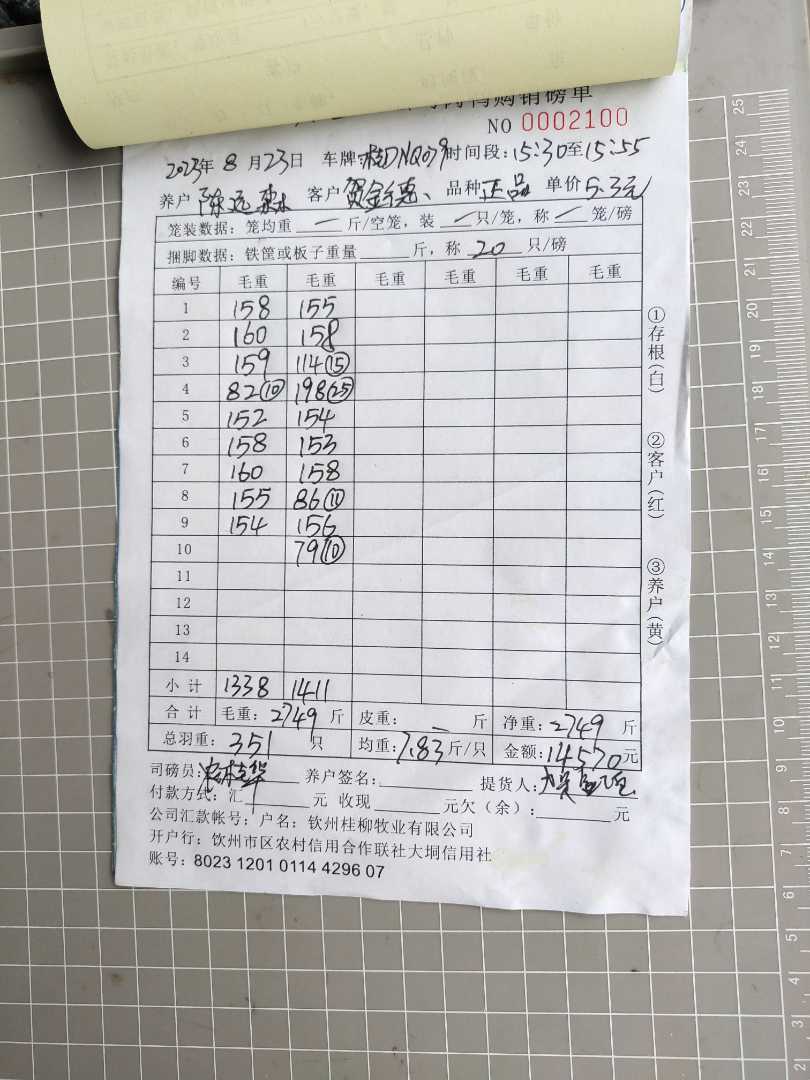 鸭购销磅单
NO 0002100
2023年 8 月 23日 车牌:桂DNQ079 时间段:15:30至15:55
养户 陈远森 客户 贺金德、 品种 正品 单价 5.3元
笼装数据: 笼均重 — 斤/空笼, 装 — 只/笼, 称 — 笼/磅
捆脚数据: 铁筐或板子重量 斤, 称 20 只/磅
编号 毛重 毛重 毛重 毛重 毛重
1 158 155
2 160 158
3 159 114⑮
4 82⑩ 198㉕
5 152 154
6 158 153
7 160 158
8 155 86⑪
9 154 156
10 79⑩
11
12
13
14
小 计 1338 1411
合 计 毛重: 2749 斤 皮重: — 斤 净重: 2749 斤
总羽重: 351 只 均重: 7.83 斤/只 金额: 14570 元
司磅员: 养户签名: 提货人:
付款方式: 汇 元 收现 元欠(余): 元
公司汇款帐号: 户名: 钦州桂柳牧业有限公司
开户行: 钦州市区农村信用合作联社大垌信用社
账号: 8023 1201 0114 4296 07
①存根(白)
②客户(红)
③养户(黄)
25
24
23
22
21
20
19
18
17
16
15
14
13
12
11
10
9
8
7
6
5
4
3
2